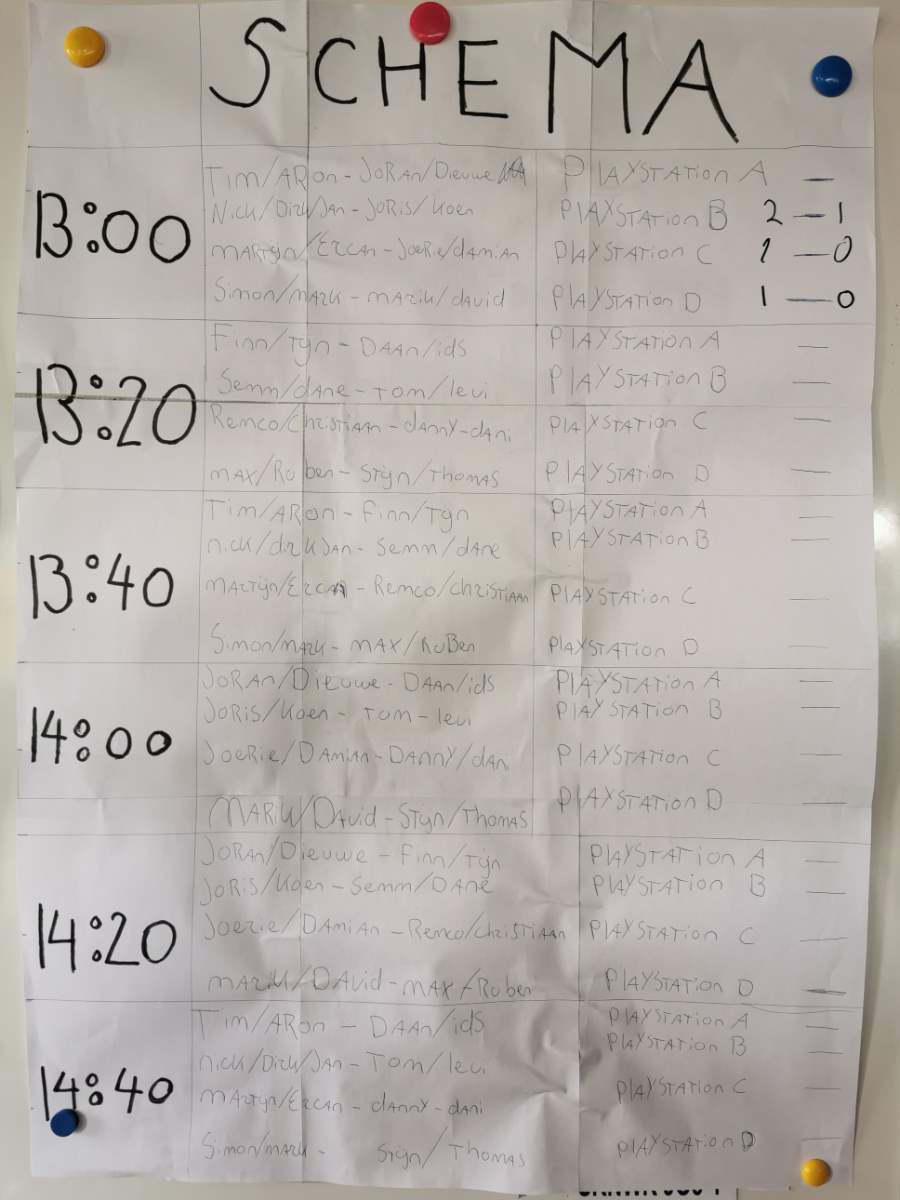 SCHEMA
13:00
Tim/ARon - JoRAn/Dieuwe PLAYSTATIon A —
Nick/Dirk/Jan - JoRis/Koen PlAYSTATIon B 2 — 1
mARTijn/ErcAn - Joerie/damiAn PlAYSTATIon C 1 — 0
Simon/mark - mARik/david PlAYSTATIon D 1 — 0
13:20
Finn/Tijn - DAAn/ids PlAYSTATIon A —
Semm/dAne - Tom/levi PlAYSTATIon B —
Remco/ChRiSTIAAn - dAnnY - dAni PlAYSTATIon C —
mAX/Ruben - STijn/Thomas PlAYSTATIon D —
13:40
Tim/ARon - Finn/Tijn PlAYSTATIon A —
nick/dirk JAn - Semm/dAne PlAYSTATIon B —
mARTijn/ErcAn - Remco/ChRiSTIAAn PlAYSTATIon C —
Simon/mARk - mAX/RuBen PlAYSTATIon D —
14:00
JoRAn/Dieuwe - DAAn/ids PlAYSTATIon A —
JoRiS/Koen - Tom - levi PlAYSTATIon B —
JoeRie/DAmiAn - DAnnY/dAni PlAYSTATIon C —
MARiK/DAvid - STijn/Thomas PlAYSTATIon D —
14:20
JoRAn/Dieuwe - Finn/Tijn PlAYSTATIon A —
JoRiS/Koen - Semm/DAne PlAYSTATIon B —
Joerie/DAmiAn - Remco/ChRiSTIAAn PlAYSTATIon C —
mARik/DAvid - mAX/Ruben PlAYSTATIon D —
14:40
Tim/ARon - DAAn/ids PlAYSTATIon A —
nick/Dirk/JAn - Tom/levi PlAYSTATIon B —
mARTijn/ErcAn - dAnnY - dAni PlAYSTATIon C —
Simon/mark - STijn/Thomas PlAYSTATIon D —